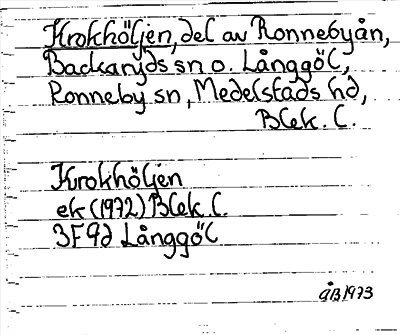 Krokhöljen, del av Ronnebyån,
Backaryds sn o. Långgöl,
Ronneby sn, Medelstads hd,
Blek. L.
Krokhöljen
ek (1972) Blek. L.
3F9d Långgöl
GB 1973